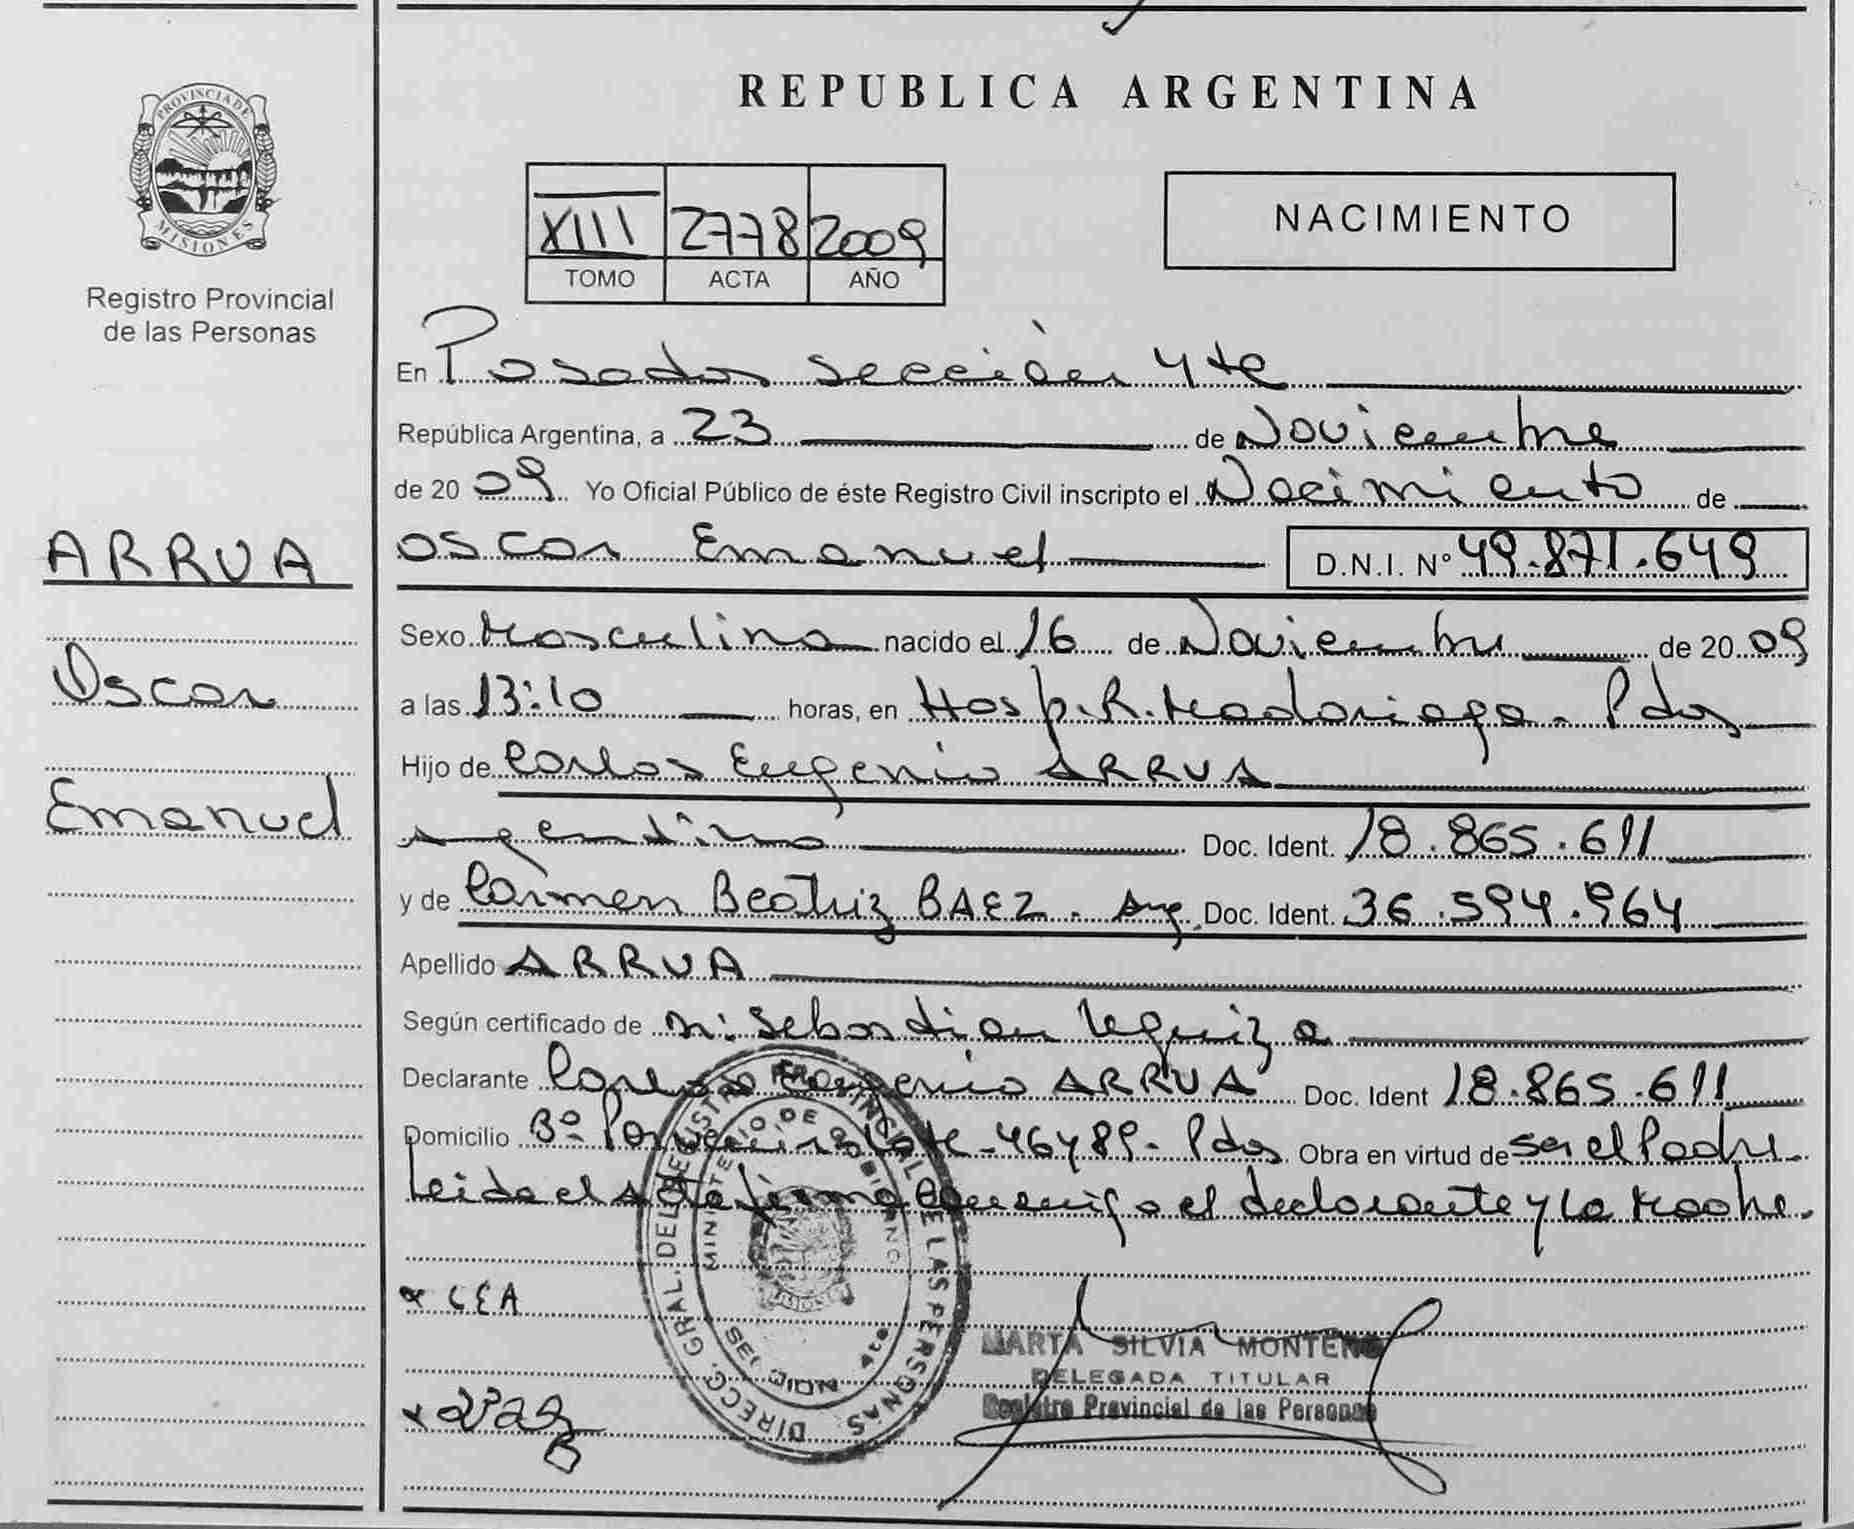 REPUBLICA ARGENTINA
PROVINCIA DE
MISIONES
Registro Provincial
de las Personas
NACIMIENTO
XIII 2778 2009
TOMO ACTA AÑO
En Posadas sección 4ta
República Argentina, a 23 de Noviembre
de 2009 Yo Oficial Público de éste Registro Civil inscripto el Nacimiento de
ARRUA
Oscar
Emanuel
Oscar Emanuel D.N.I. Nº 49.871.649
Sexo Masculino nacido el 16 de Noviembre de 2009
a las 13:10 horas, en Hosp. R. Madariaga - Pdas
Hijo de Carlos Eugenio ARRUA
argentino Doc. Ident. 18.865.611
y de Carmen Beatriz BAEZ - Arg. Doc. Ident. 36.594.964
Apellido ARRUA
Según certificado de Sebastian
Declarante Carlos Eugenio ARRUA Doc. Ident 18.865.611
Domicilio Bº - Pdas Obra en virtud de ser el Padre.
Leida el Acta firma conmigo el declarante y la Madre.
CEA
DIRECC. GRAL. DEL REGISTRO PROVINCIAL DE LAS PERSONAS
MINISTERIO DE GOBIERNO
SECCION 4ta
MARTA SILVIA MONTERO
DELEGADA TITULAR
Registro Provincial de las Personas